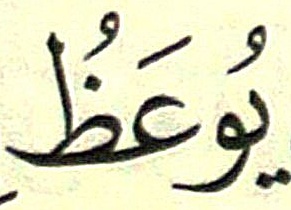 يُوعَظُ